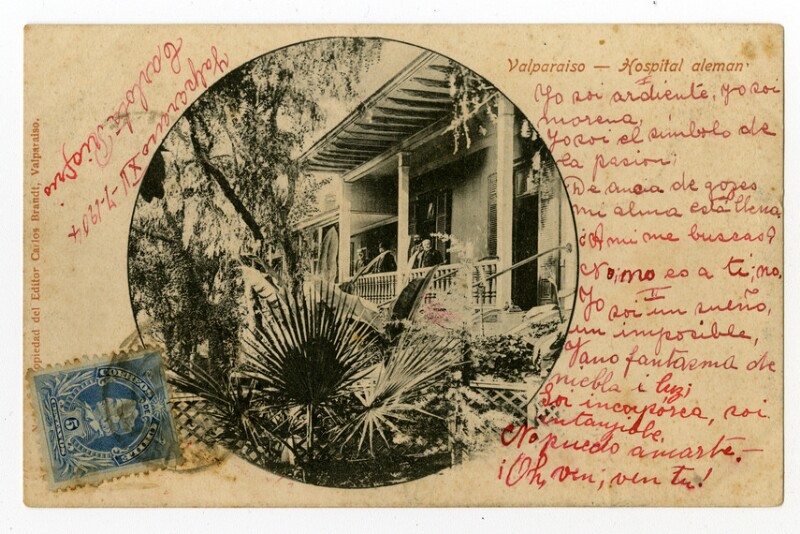 Valparaiso — Hospital aleman
I
Yo soi ardiente, yo soi
morena,
Yo soi el símbolo de
la pasion;
De ancia de goces
mi alma está llena
¿A mi me buscas?
No, no es a ti; no,
II
Yo soi un sueño,
un imposible,
Vano fantasma de
niebla i luz;
Soi incorpórea, soi
intanjible
No puedo amarte.—
¡Oh, ven; ven tu!
Valparaiso XII-7-1904
Carlos
opiedad del Editor Carlos Brandt, Valparaiso.
CORREOS DE
5